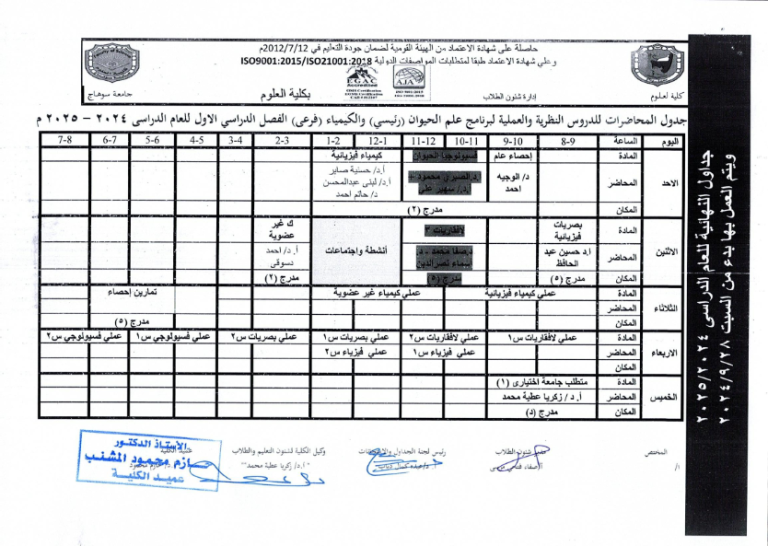 حاصلة على شهادة الاعتماد من الهيئة القومية لضمان جودة التعليم في 2012/7/12م
وعلي شهادة الاعتماد طبقا لمتطلبات المواصفات الدولية ISO9001:2015/ISO21001:2018
EGAC
AJA
كلية العلوم
إدارة شئون الطلاب
بكلية العلوم
جامعة سوهاج
جدول المحاضرات للدروس النظرية والعملية لبرنامج علم الحيوان (رئيسي) والكيمياء (فرعى) الفصل الدراسي الاول للعام الدراسى ٢٠٢٤ – ٢٠٢٥ م
اليوم الساعة 8-9 9-10 10-11 11-12 12-1 1-2 2-3 3-4 4-5 5-6 6-7 7-8
الاحد
المادة إحصاء عام فسيولوجيا الحيوان كيمياء فيزيائية
المحاضر د/ الوجيه احمد أ.د/ سهير على أ.د/ حسنية صابر أ.د/ لبنى عبدالمحسن د/ حاتم احمد
المكان مدرج (٢)
الاثنين
المادة بصريات فيزيائية لافقاريات ٣ أنشطة واجتماعات ك غير عضوية
المحاضر أ.د حسين عبد الحافظ د.صفا محمد – د. أسماء نصرالدين أ.د/ احمد دسوقى
المكان مدرج (٥) مدرج (٥) مدرج (٢)
الثلاثاء
المادة عملي كيمياء فيزيائية عملي كيمياء غير عضوية تمارين إحصاء
المحاضر
المكان مدرج (٥)
الاربعاء
المادة عملي لافقاريات س١ عملي لافقاريات س٢ عملي بصريات س١ عملي بصريات س٢ عملي فسيولوجي س١ عملي فسيولوجي س٢
المحاضر عملي فيزياء س١ عملي فيزياء س٢
المكان
الخميس
المادة متطلب جامعة اختيارى (١)
المحاضر أ.د / زكريا عطية محمد
المكان مدرج (د)
المختص
شئون الطلاب
رئيس لجنة الجداول
وكيل الكلية لشئون التعليم والطلاب
"أ.د/ زكريا عطية محمد"
الاستاذ الدكتور
حازم محمود المشنب
عميد الكلية
جداول النهائية للعام الدراسى ٢٠٢٥/٢٠٢٤
ويتم العمل بها بدء من السبت ٢٠٢٤/٩/٢٨